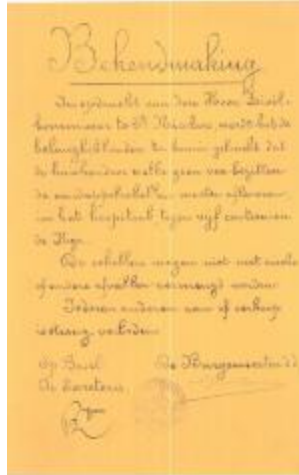 Bekendmaking
In opdracht van den Heer Civiel-
kommissaris te St Nicolaas, wordt het de
belanghebbenden te kennen gebracht dat
de huishoudens welke geen vee bezitten
de aardappelschillen moeten afleveren
in het hospitaal tegen vijf centiemen
de Kgr.
De schillen mogen niet met
of andere afvallen vermengd worden.
Iederen anderen aan of verkoop
is streng verboden.
Op Bevel De Burgemeester
De Secretaris,